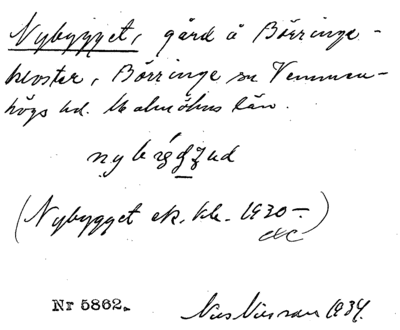 Nybygget, gård å Börringe-
kloster, Börringe sn Vemmen-
högs hd. Malmöhus län.
(Nybygget ek. kb. 1930-)
Nr 5862.
Nils Nilsson 1934.